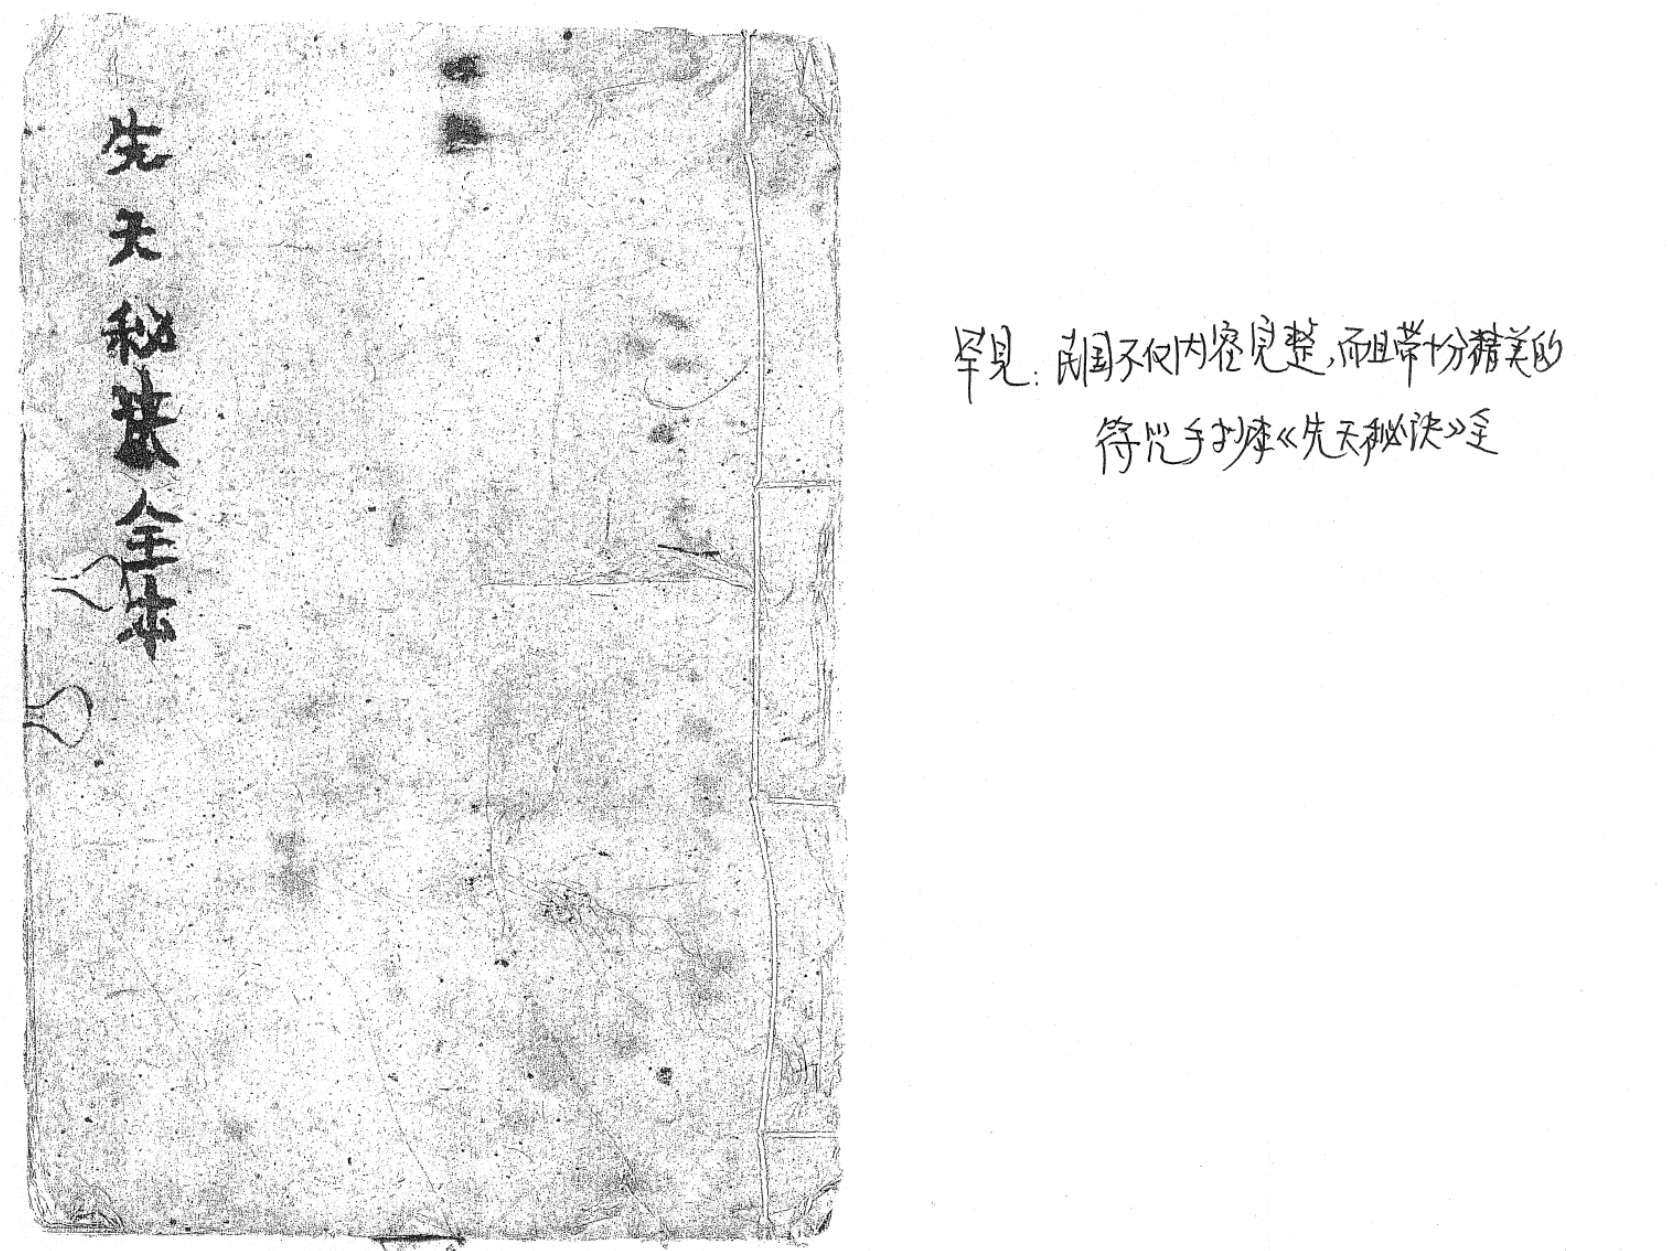 先天秘全本
罕见:民国不仅内容完整,而且带十分精美的
符咒手抄本《先天秘诀》全